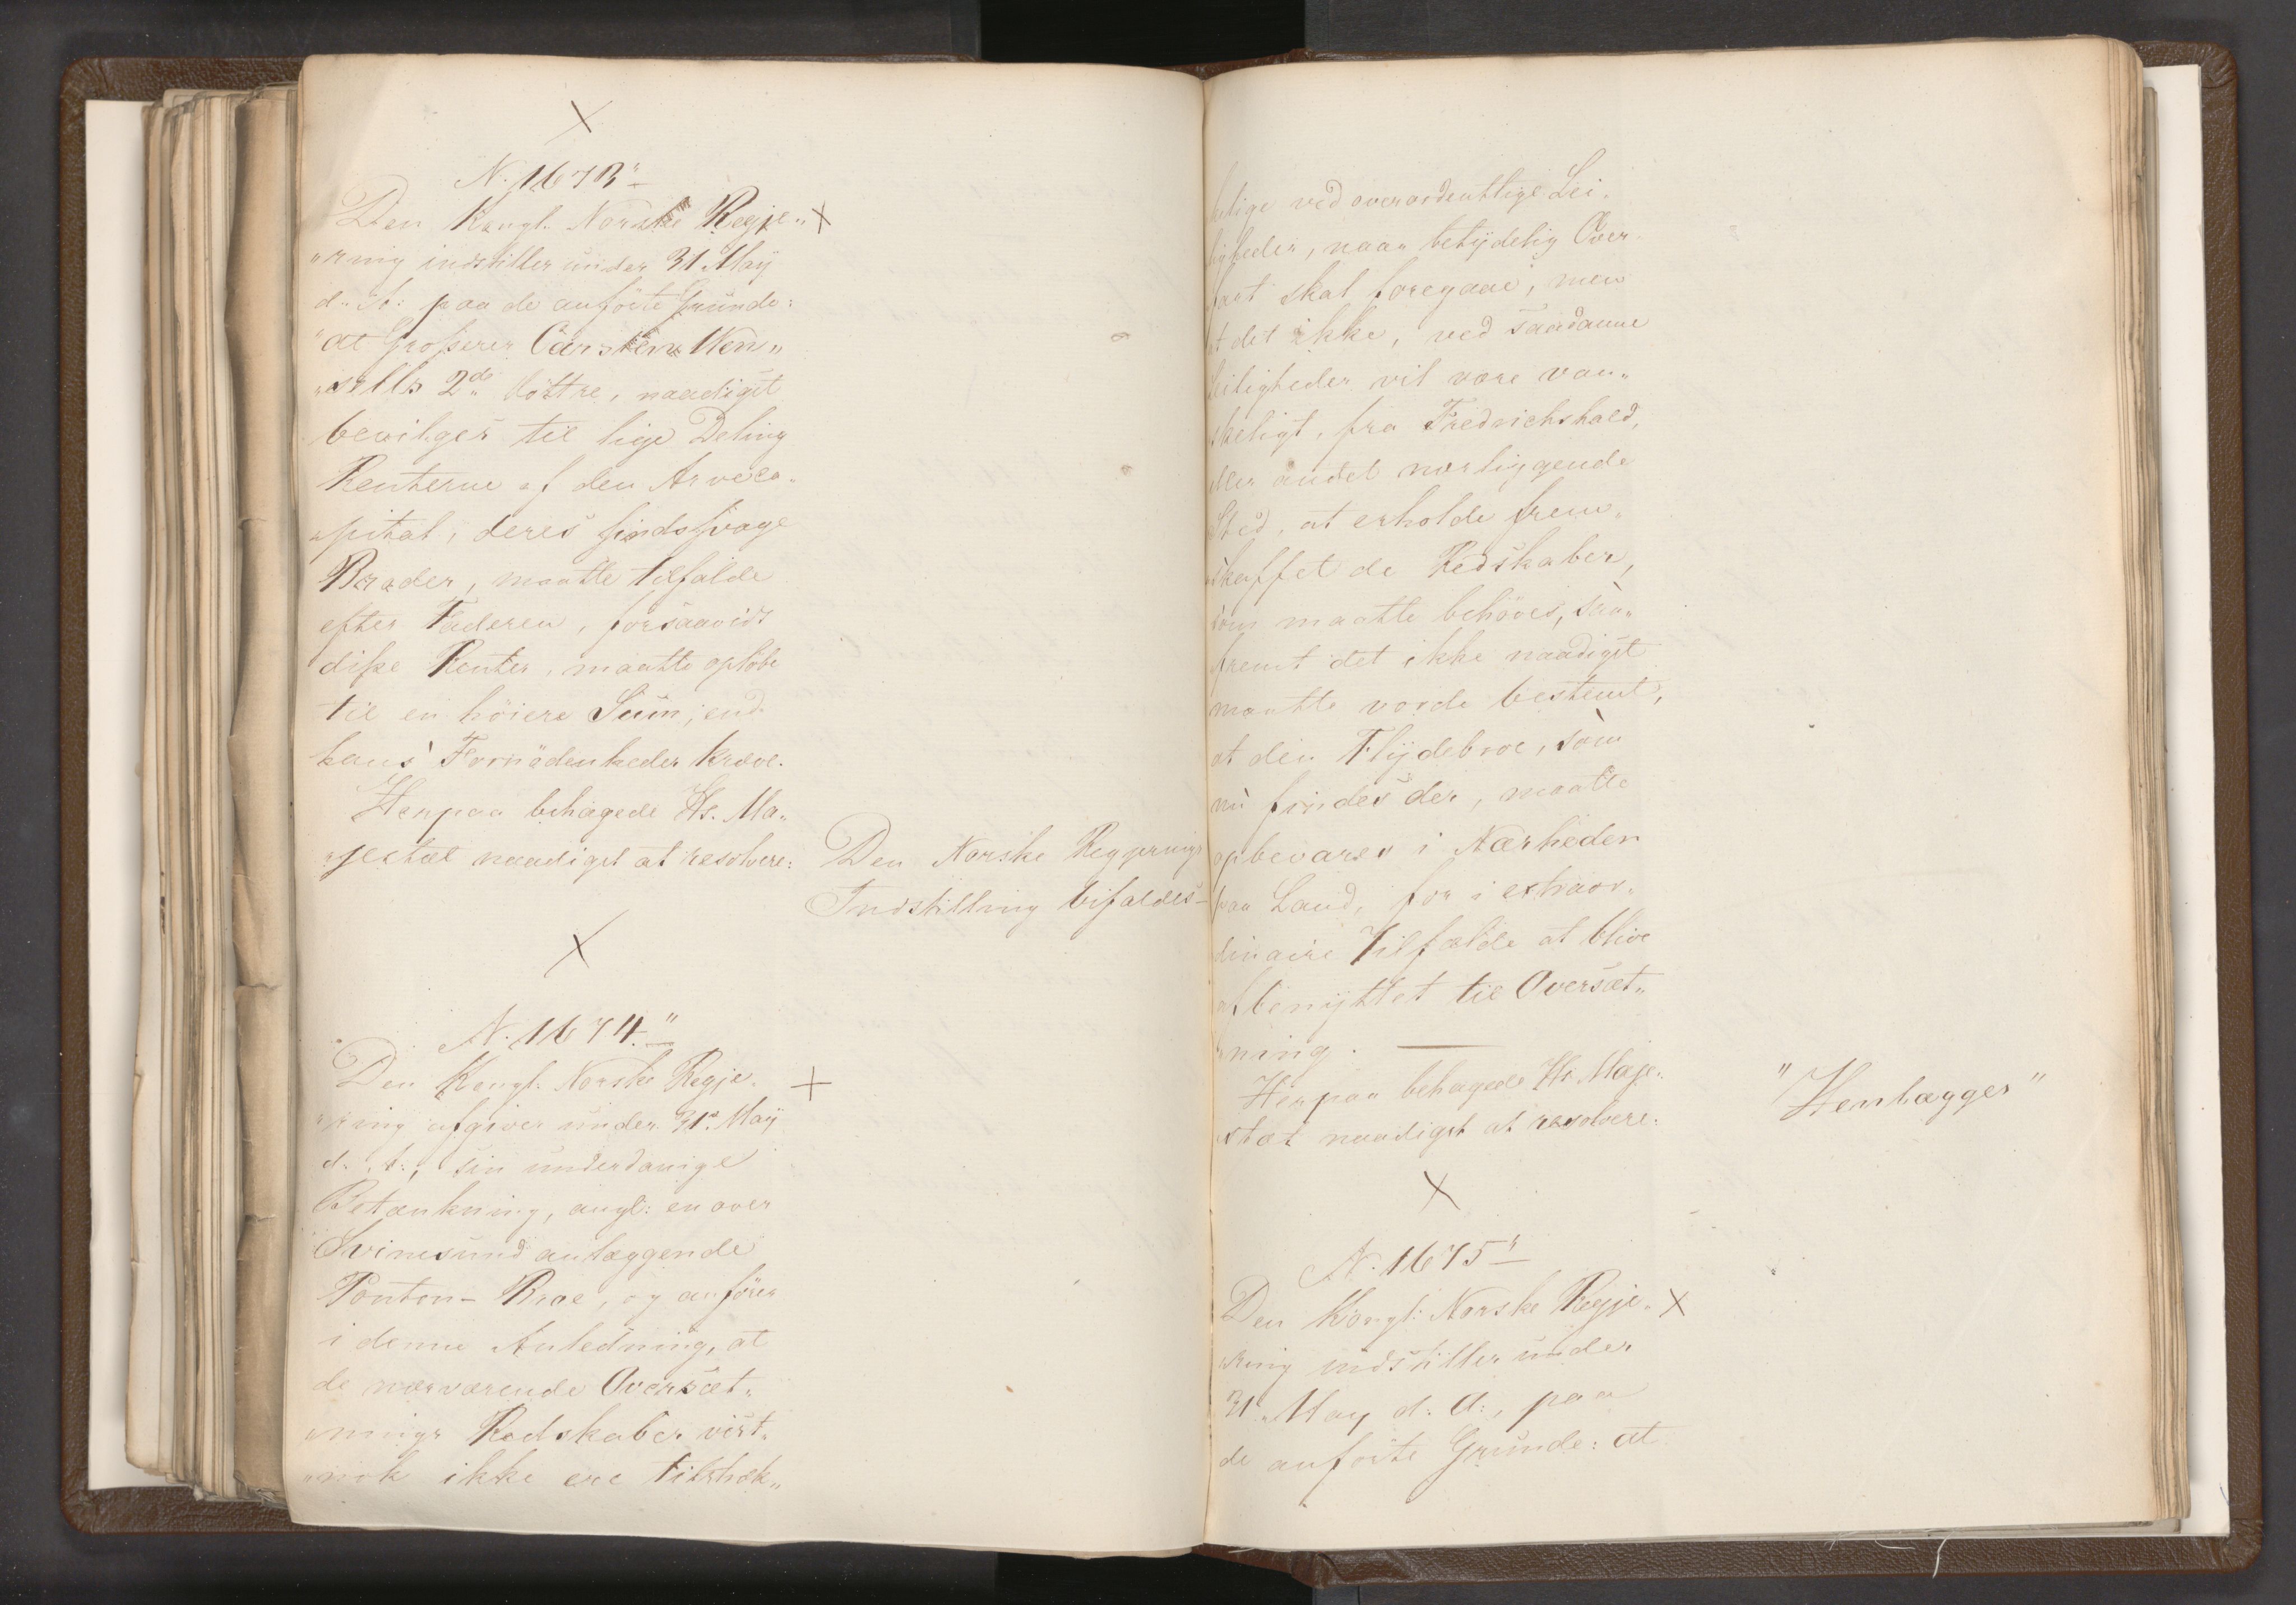 N. 1673"
Den Kongl. Norske Regje„
„ring indstiller under 31 May
d. A: paa de anförte Grunde:
"at Grosserer Carsten Wen„
„sells 2de Döttre, naadigst
bevilges til lige Deling
Renterne af den Arveca„
„pital, deres sindssvage
Broder, maatte tilfalde
efter Faderen, forsaavidt
disse Renter, maatte opløbe
til en höiere Sum, end
hans Fornödenheder kræve.
Herpaa behagede Hs. Ma„
„jestæt naadigst at resolvere:
Den Norske Regjerings
Indstilling bifaldes
N. 1674."
Den Kongl: Norske Regje„
„ring afgiver under 31 May
d. A:, sin underdanige
Betænkning, angl: en over
Svinesund anlæggende
Ponton-Broe, og anförer
i denne Anledning, at
de nærværende Oversæt„
„nings Redskaber vist„
„nok ikke ere tilstræk„
kelige ved overordentlige Lei„
ligheder, naar betydelig Over„
fart skal foregaae, men
at det ikke, ved saadanne
Leiligheder vil være van„
skeligt, fra Fredrichshald,
eller andet nærliggende
Sted, at erholde frem„
„skaffet de Redskaber,
som maatte behöves, saa„
fremt det ikke naadigst
maatte vorde bestemt,
at den Flydebroe, som
nu findes der, maatte
opbevares i Nærheden
paa Land, for i extraor„
dinaire Tilfælde at blive
afbenyttet til Oversæt„
„ning.
Herpaa behagede Hs Maje„
stæt naadigst at resolvere.
"Henlægges"
N. 1675"
Den Kongl: Norske Regje„
„ring indstiller under
31 May d: A:, paa
de anförte Grunde: at